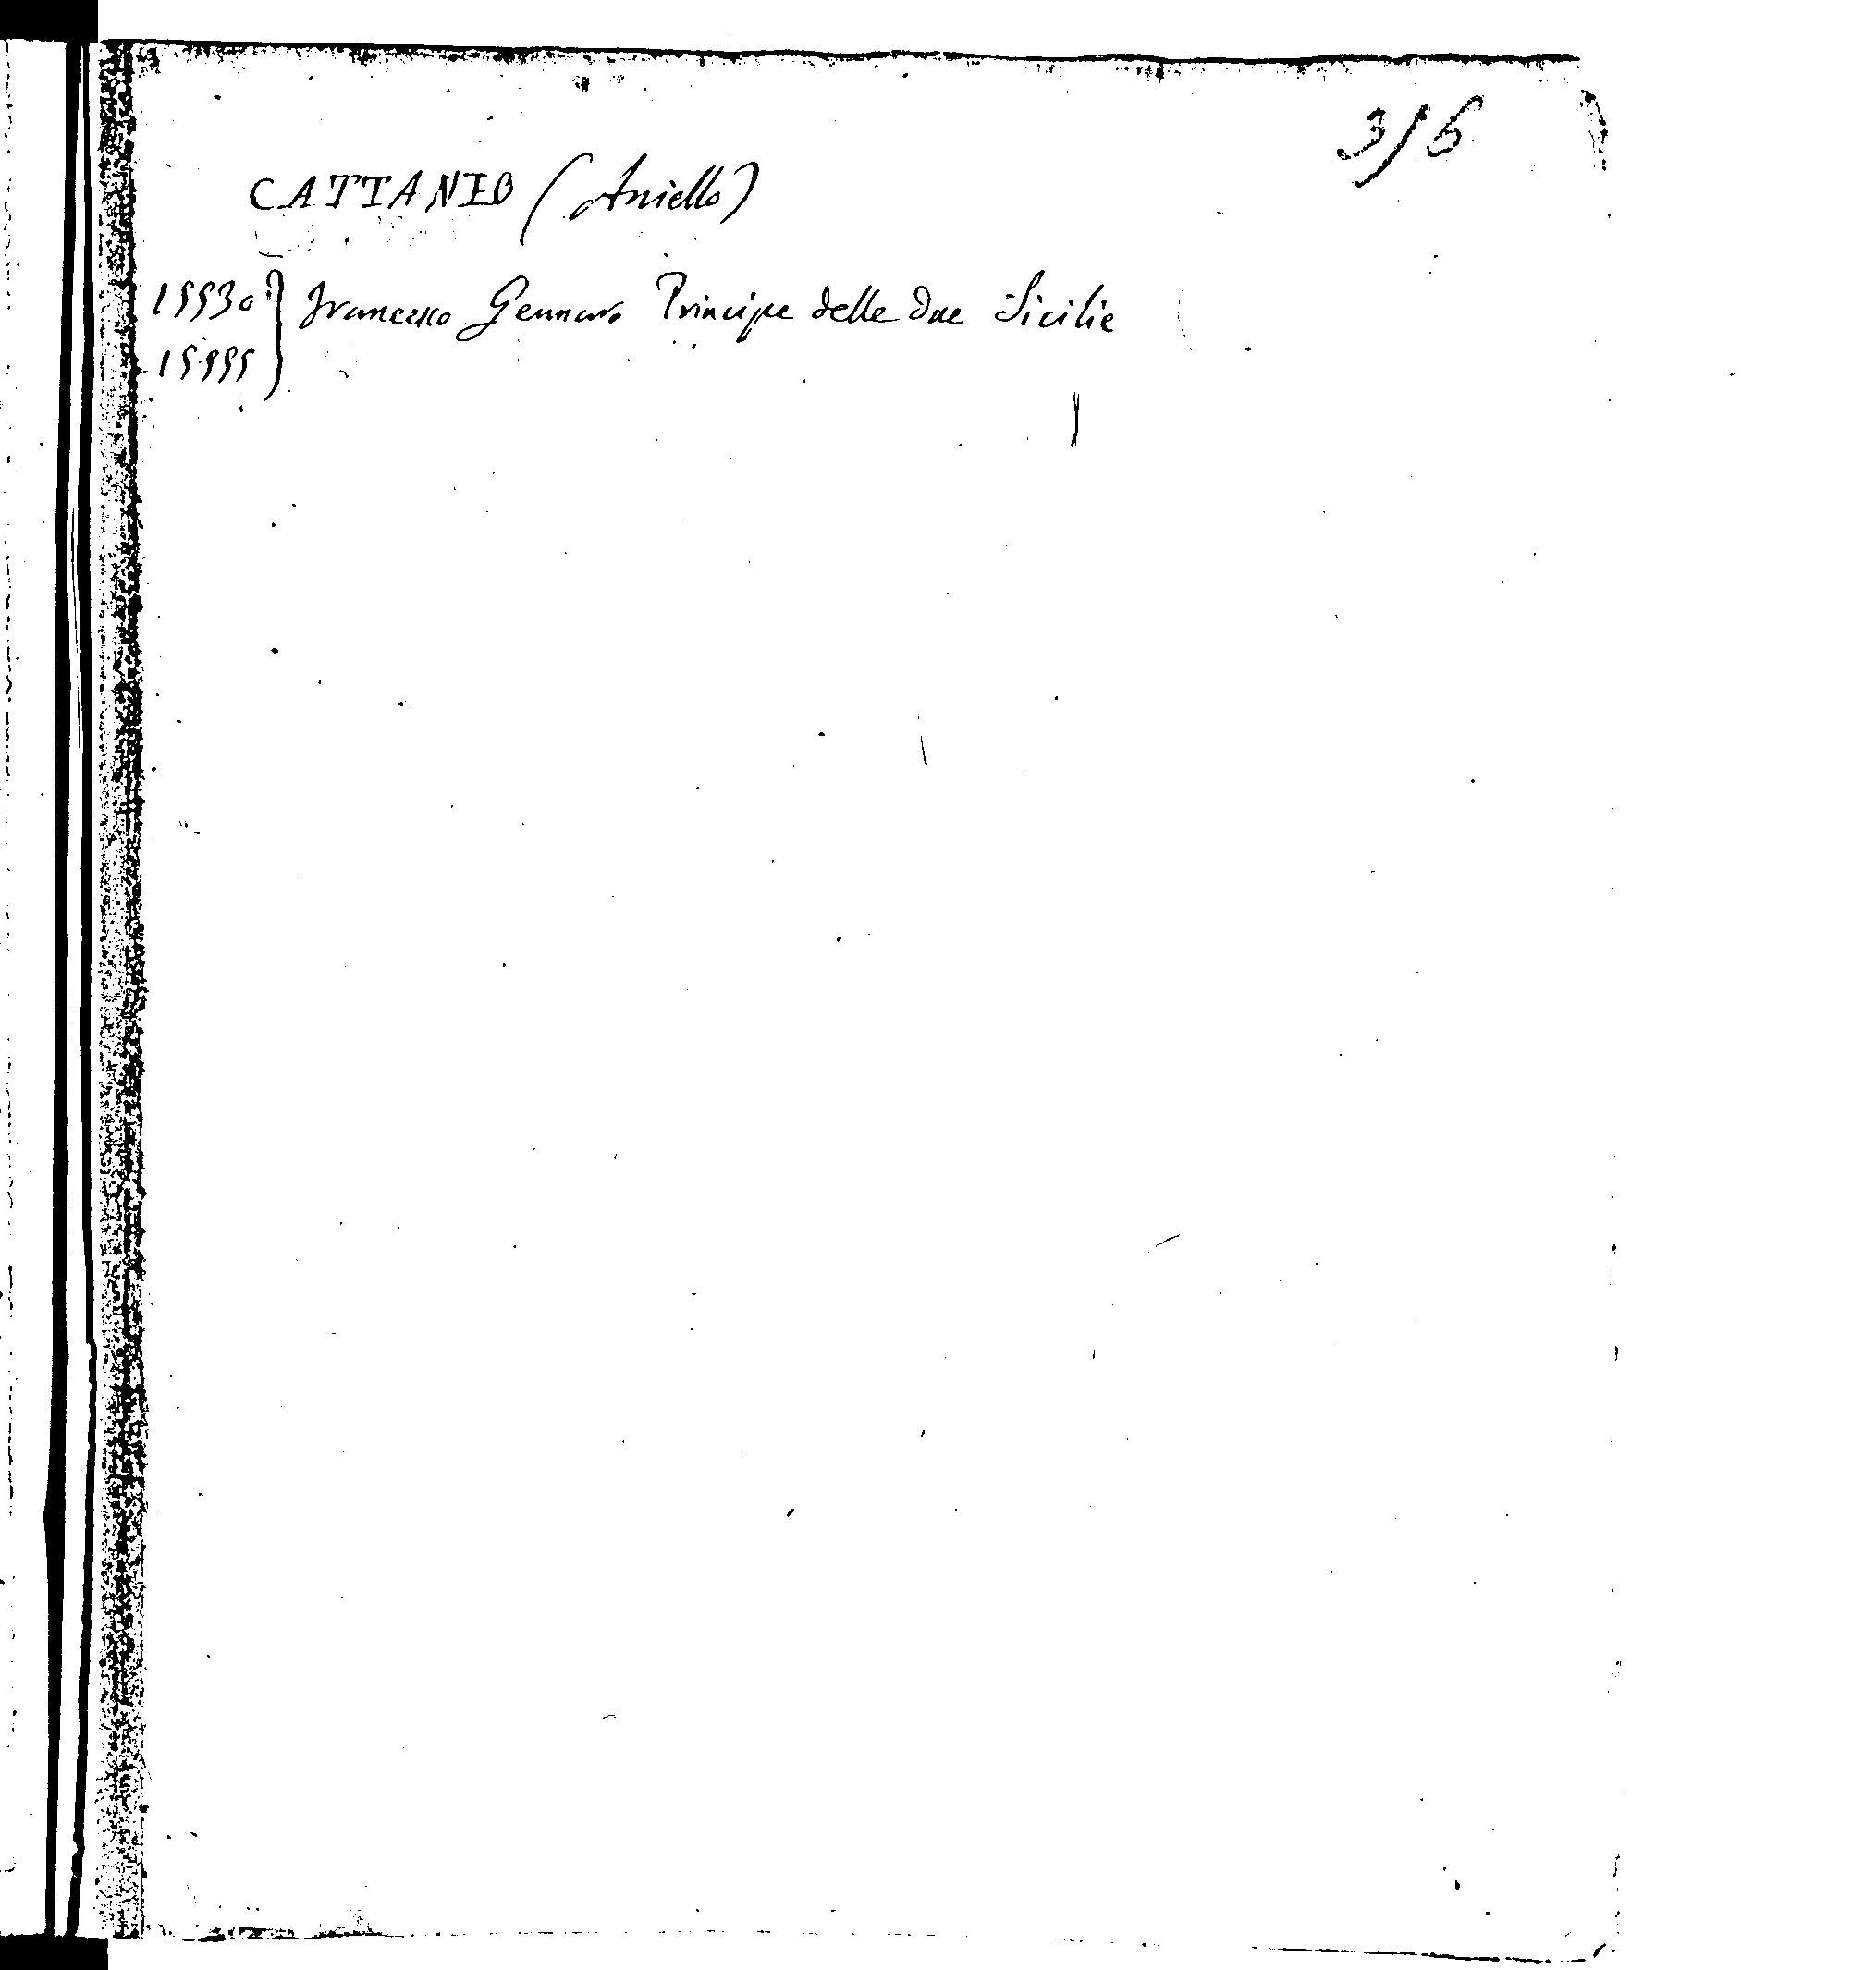 356
CATTANEO (Aniello)
15530 } Francesco Gennaro Principe delle due Sicilie
15555